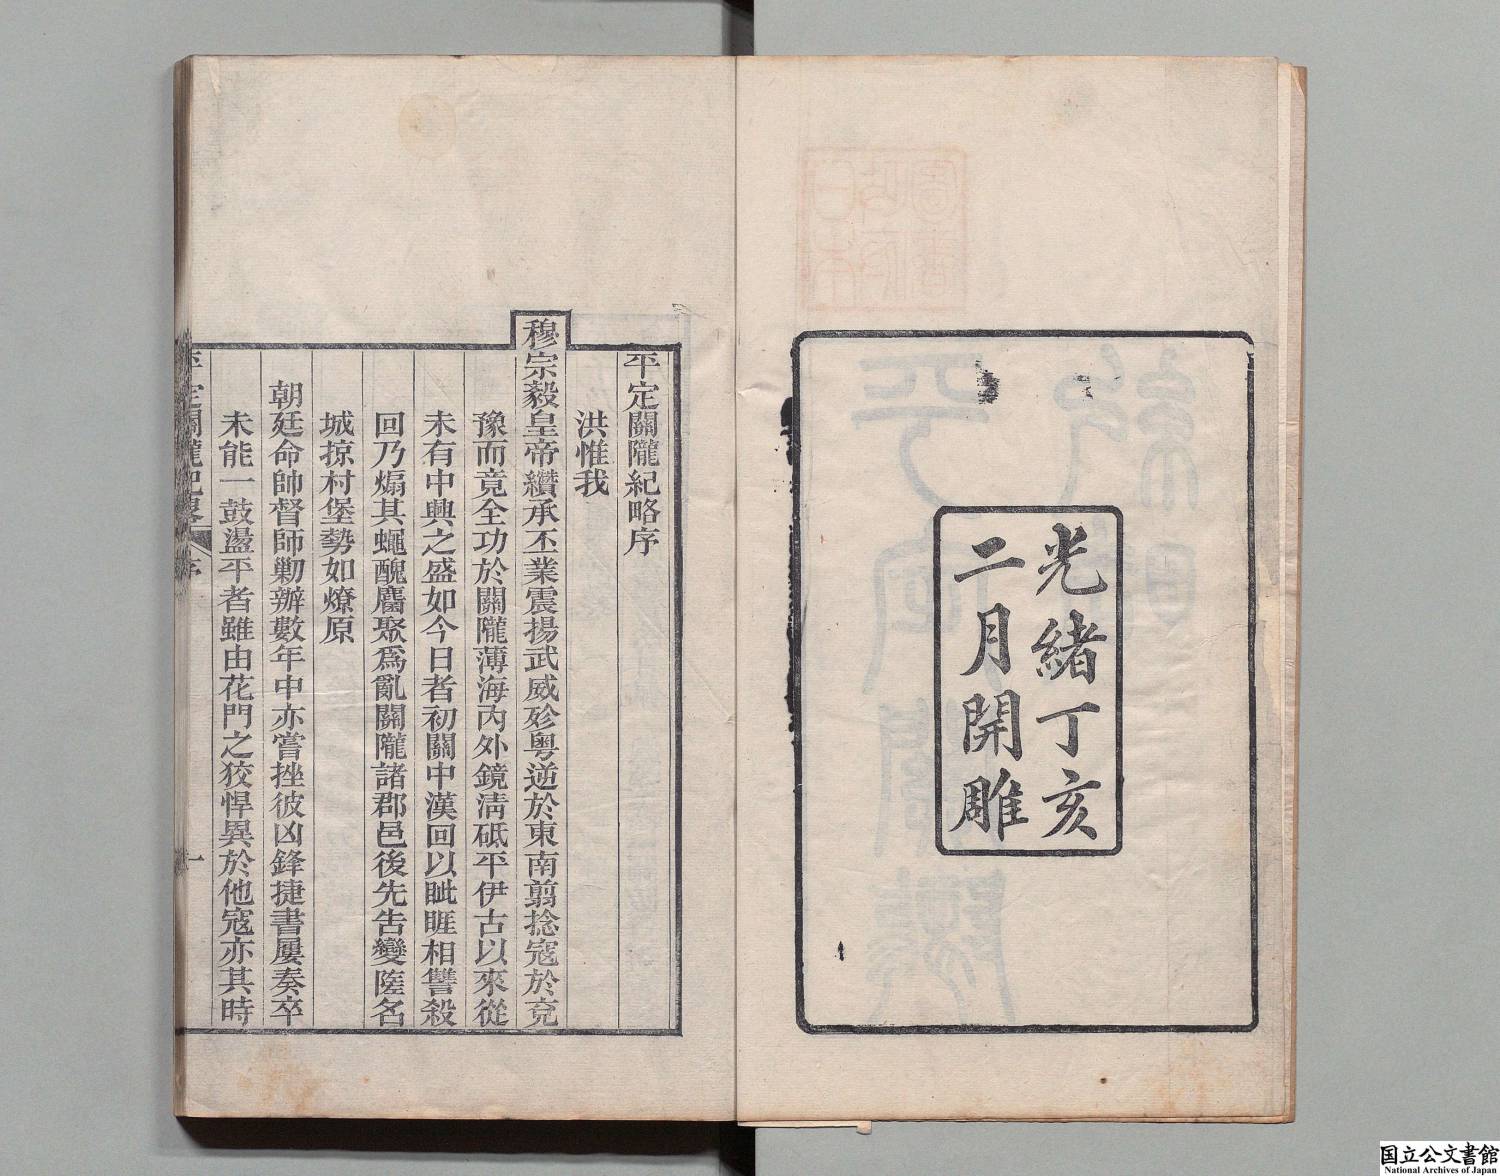 光緒丁亥
二月開雕
平定關隴紀略序
洪惟我
穆宗毅皇帝纘承丕業震揚武威殄粵逆於東南翦捻寇於兗
豫而竟全功於關隴薄海內外鏡清砥平伊古以來從
未有中興之盛如今日者初關中漢回以眦睚相讐殺
回乃煽其蠅醜麕聚為亂關隴諸郡邑後先告變隓名
城掠村堡勢如燎原
朝廷命帥督師勦辦數年中亦嘗挫彼凶鋒捷書屢奏卒
未能一鼓盪平者雖由花門之狡悍異於他寇亦其時
平定關隴紀略 序 一
国立公文書館
National Archives of Japan